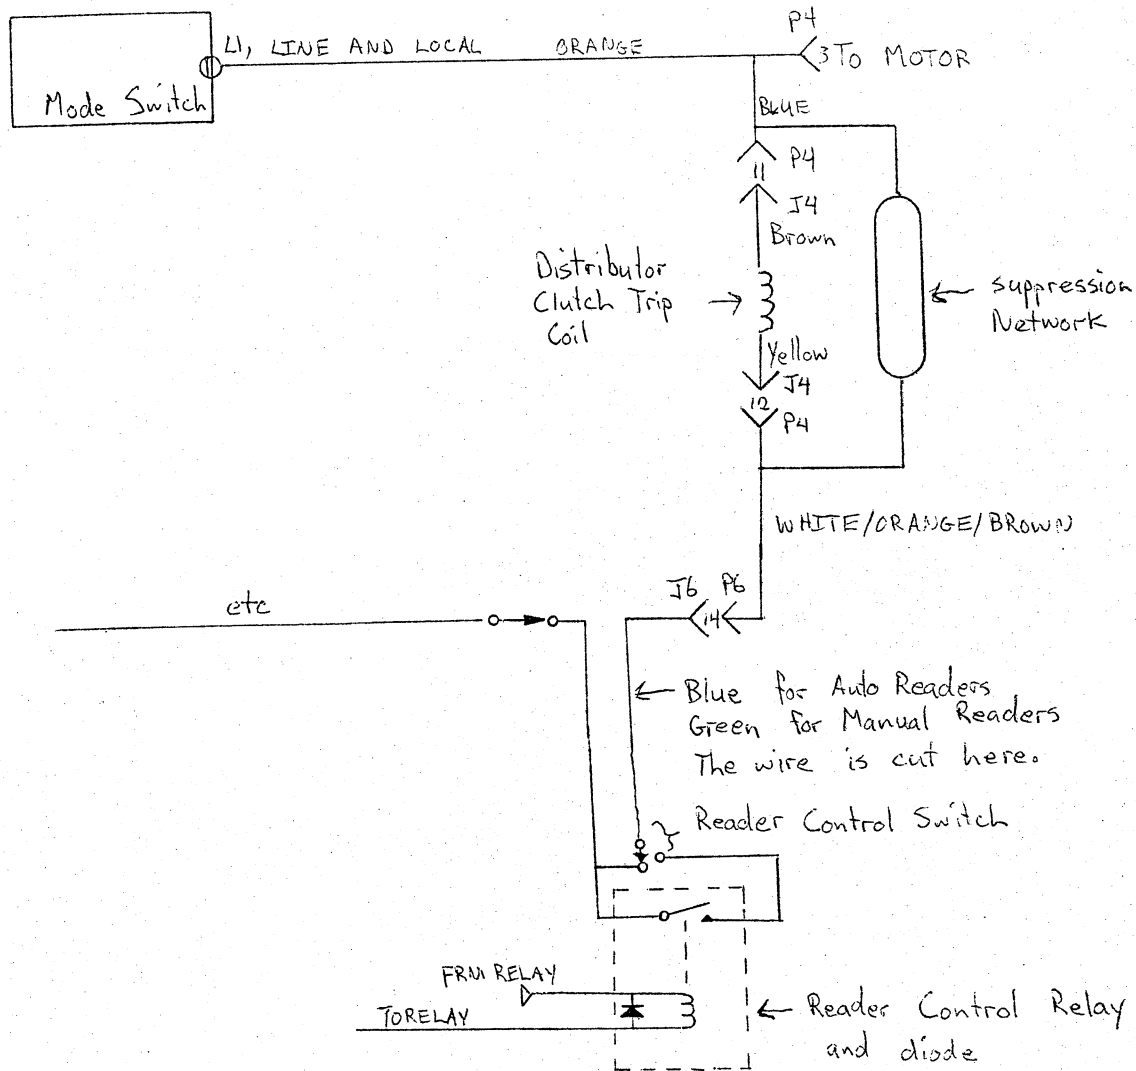 P4
L1, LINE AND LOCAL ORANGE
3 TO MOTOR
Mode Switch
BLUE
P4
11
J4
Brown
Distributor
Clutch Trip
Coil
suppression
Network
Yellow
J4
12
P4
WHITE/ORANGE/BROWN
J6 P6
14
etc
Blue for Auto Readers
Green for Manual Readers
The wire is cut here.
Reader Control Switch
FRM RELAY
TO RELAY
Reader Control Relay
and diode